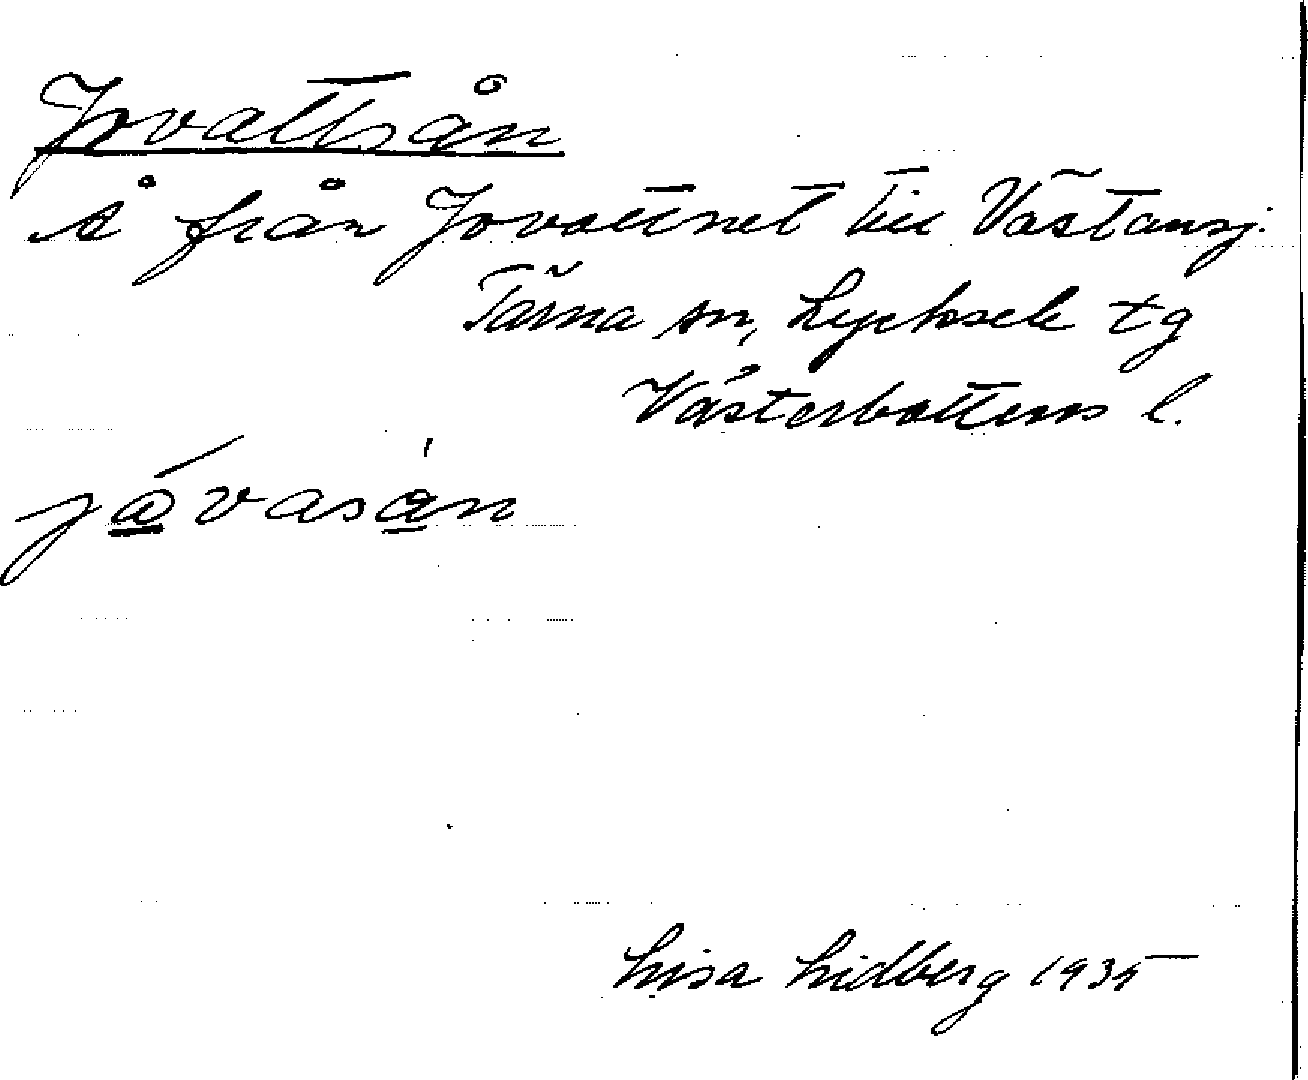 Jovattsån
Å från Jovattnet till Västansj.
Tärna sn, Lycksele tg
Västerbottens l.
jåvasån
Lisa Lidberg 1935